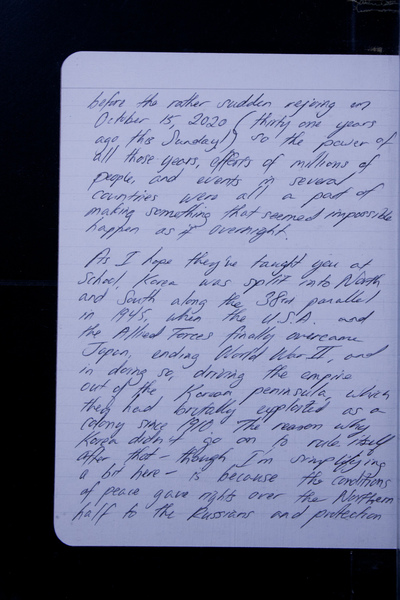 before the rather sudden rejoing on
October 15, 2020 (thirty one years
ago this Sunday!) so the power of
all those years, efforts of millions of
people, and events in several
countries were all a part of
making something that seemed impossible
happen as if overnight.
As I hope they've taught you at
School, Korea was split into North
and South along the 38rd parallel
in 1945, when the U.S.A. and
the Allied Forces finally overcame
Japan, ending World War II, and
in doing so, driving the empire
out of the Korean peninsula, which
they had brutally exploited as a
colony since 1910. The reason why
Korea didn't go on to rule itself
after that – though I'm simplifying
a bit here – is because the conditions
of peace gave rights over the Northern
half to the Russians and protection